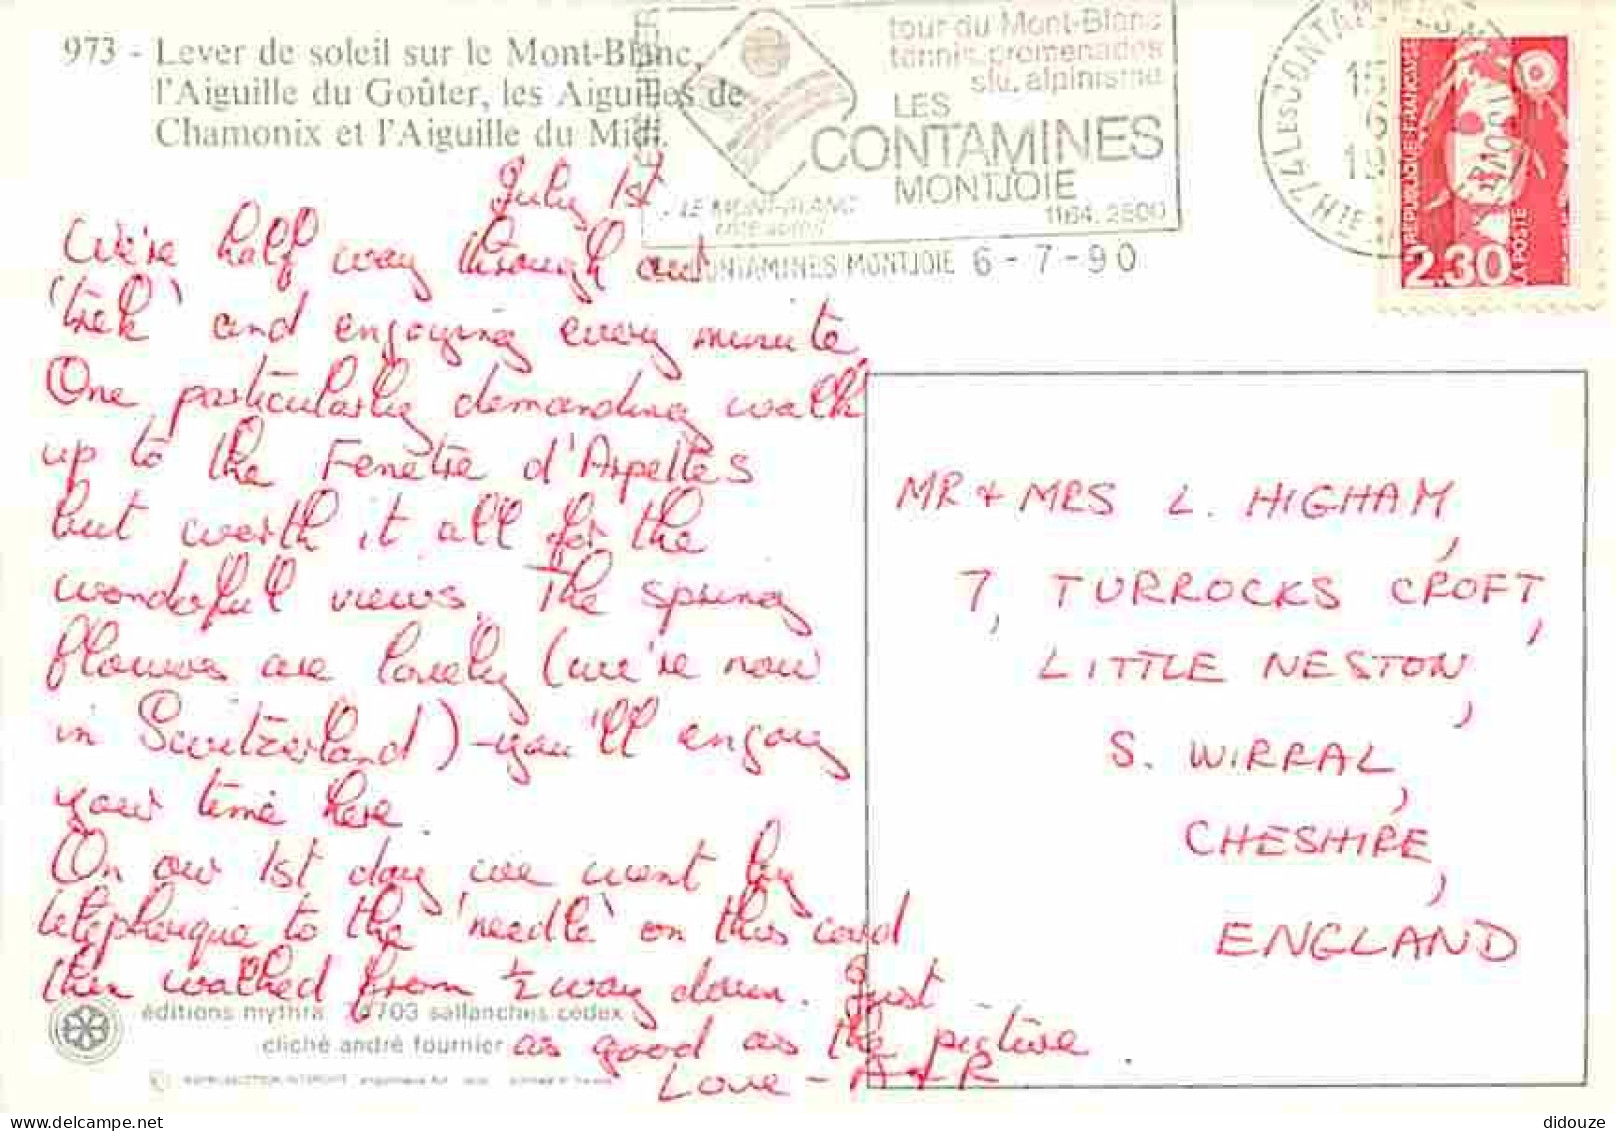 973 - Lever de soleil sur le Mont-Blanc,
l'Aiguille du Goûter, les Aiguilles de
Chamonix et l'Aiguille du Midi.
tour du Mont-Blanc
tennis, promenades
ski, alpinisme
LES
CONTAMINES
MONTJOIE
LE MONT-BLANC
1164.2500
CONTAMINES MONTJOIE 6-7-90
74 LES CONTAMINES MONTJOIE
REPUBLIQUE FRANÇAISE
2.30
LA POSTE
July 1st
We're half way through our
'trek' and enjoying every minute
One particularly demanding walk
up to the Fenetre d'Arpettes
but worth it all for the
wonderful views. The spring
flowers are lovely (we're now
in Switzerland) - you'll enjoy
your time here.
On our 1st day we went by
telepherique to the 'needle' on this card
then walked from ½ way down. Just
as good as the picture.
Love - A & R
MR & MRS L. HIGHAM,
7, TURROCKS CROFT,
LITTLE NESTON,
S. WIRRAL,
CHESHIRE,
ENGLAND
éditions mythra 74703 sallanches cedex
cliché andré fournier
didouze